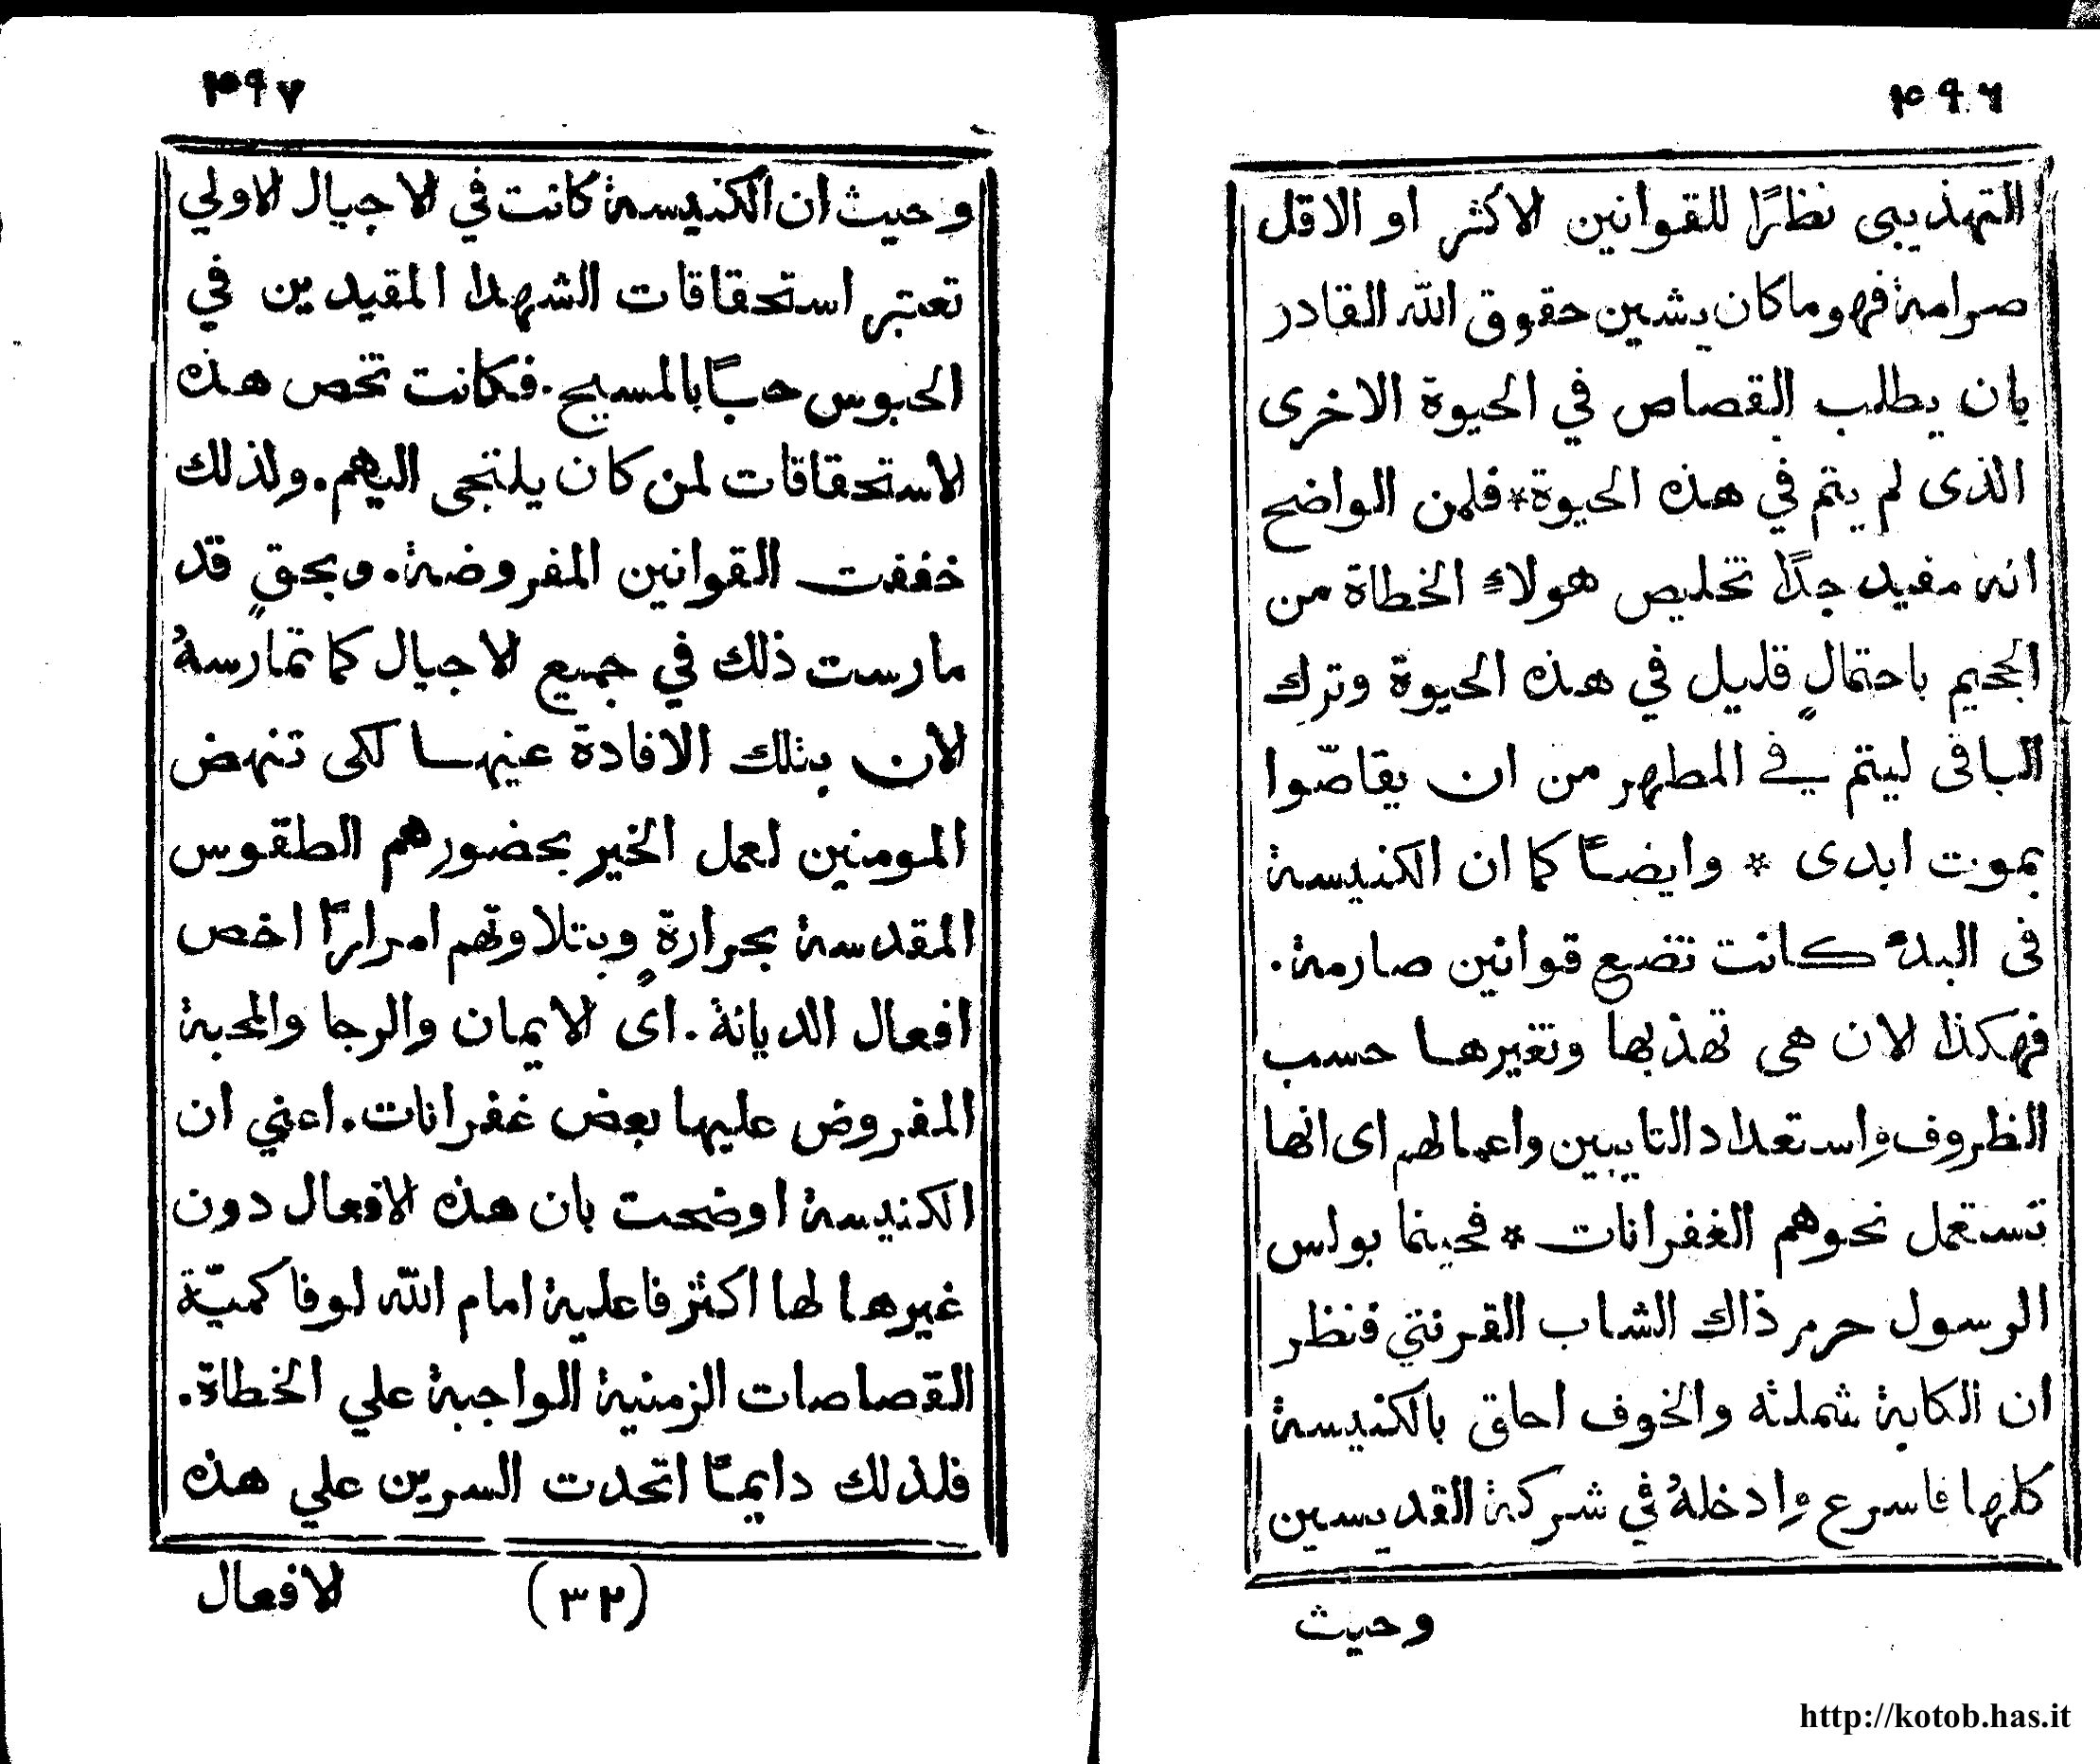 ٤٩٦
التهذيبى نظرًا للقوانين الاكثر او الاقل
صرامة فهو ما كان يشين حقوق الله القادر
بان يطلب القصاص في الحيوة الاخرى
الذى لم يتم في هذه الحيوة * فلمن الواضح
انه مفيد جدًا تخليص هولاء الخطاة من
الجحيم باحتمالٍ قليل في هذه الحيوة وترك
الباقى ليتم في المطهر من ان يقاصّوا
بموت ابدى * وايضًا كما ان الكنيسة
فى البدء كانت تضع قوانين صارمة.
فهكذا الان هى تهذبها وتغيرها حسب
الظروف واستعداد التايبين واعمالهم اى انها
تستعمل نحوهم الغفرانات * فحينما بولس
الرسول حرم ذاك الشاب القرنتي فنظر
ان الكابة شملته والخوف احاق بالكنيسة
كلها فاسرع وادخلهُ في شركة القديسين
وحيث
٤٩٧
وحيث ان الكنيسة كانت في الاجيال الاولي
تعتبر استحقاقات الشهدا المقيدين في
الحبوس حبًا بالمسيح. فكانت تخص هذه
الاستحقاقات لمن كان يلتجى اليهم. ولذلك
خففت القوانين المفروضة. وبحقٍ قد
مارست ذلك في جميع الاجيال كما تمارسهُ
الان بتلك الافادة عينها لكى تنهض
المومنين لعمل الخير بحضورهم الطقوس
المقدسة بحرارةٍ وبتلاوتهم امرارًا اخص
افعال الديانة. اى الايمان والرجا والمحبة
المفروض عليها بعض غفرانات. اعني ان
الكنيسة اوضحت بان هذه الافعال دون
غيرها لها اكثر فاعلية امام الله لوفا كميّة
القصاصات الزمنية الواجبة علي الخطاة.
فلذلك دايمًا اتحدت السرين علي هذه
(٣٢)
الافعال
http://kotob.has.it